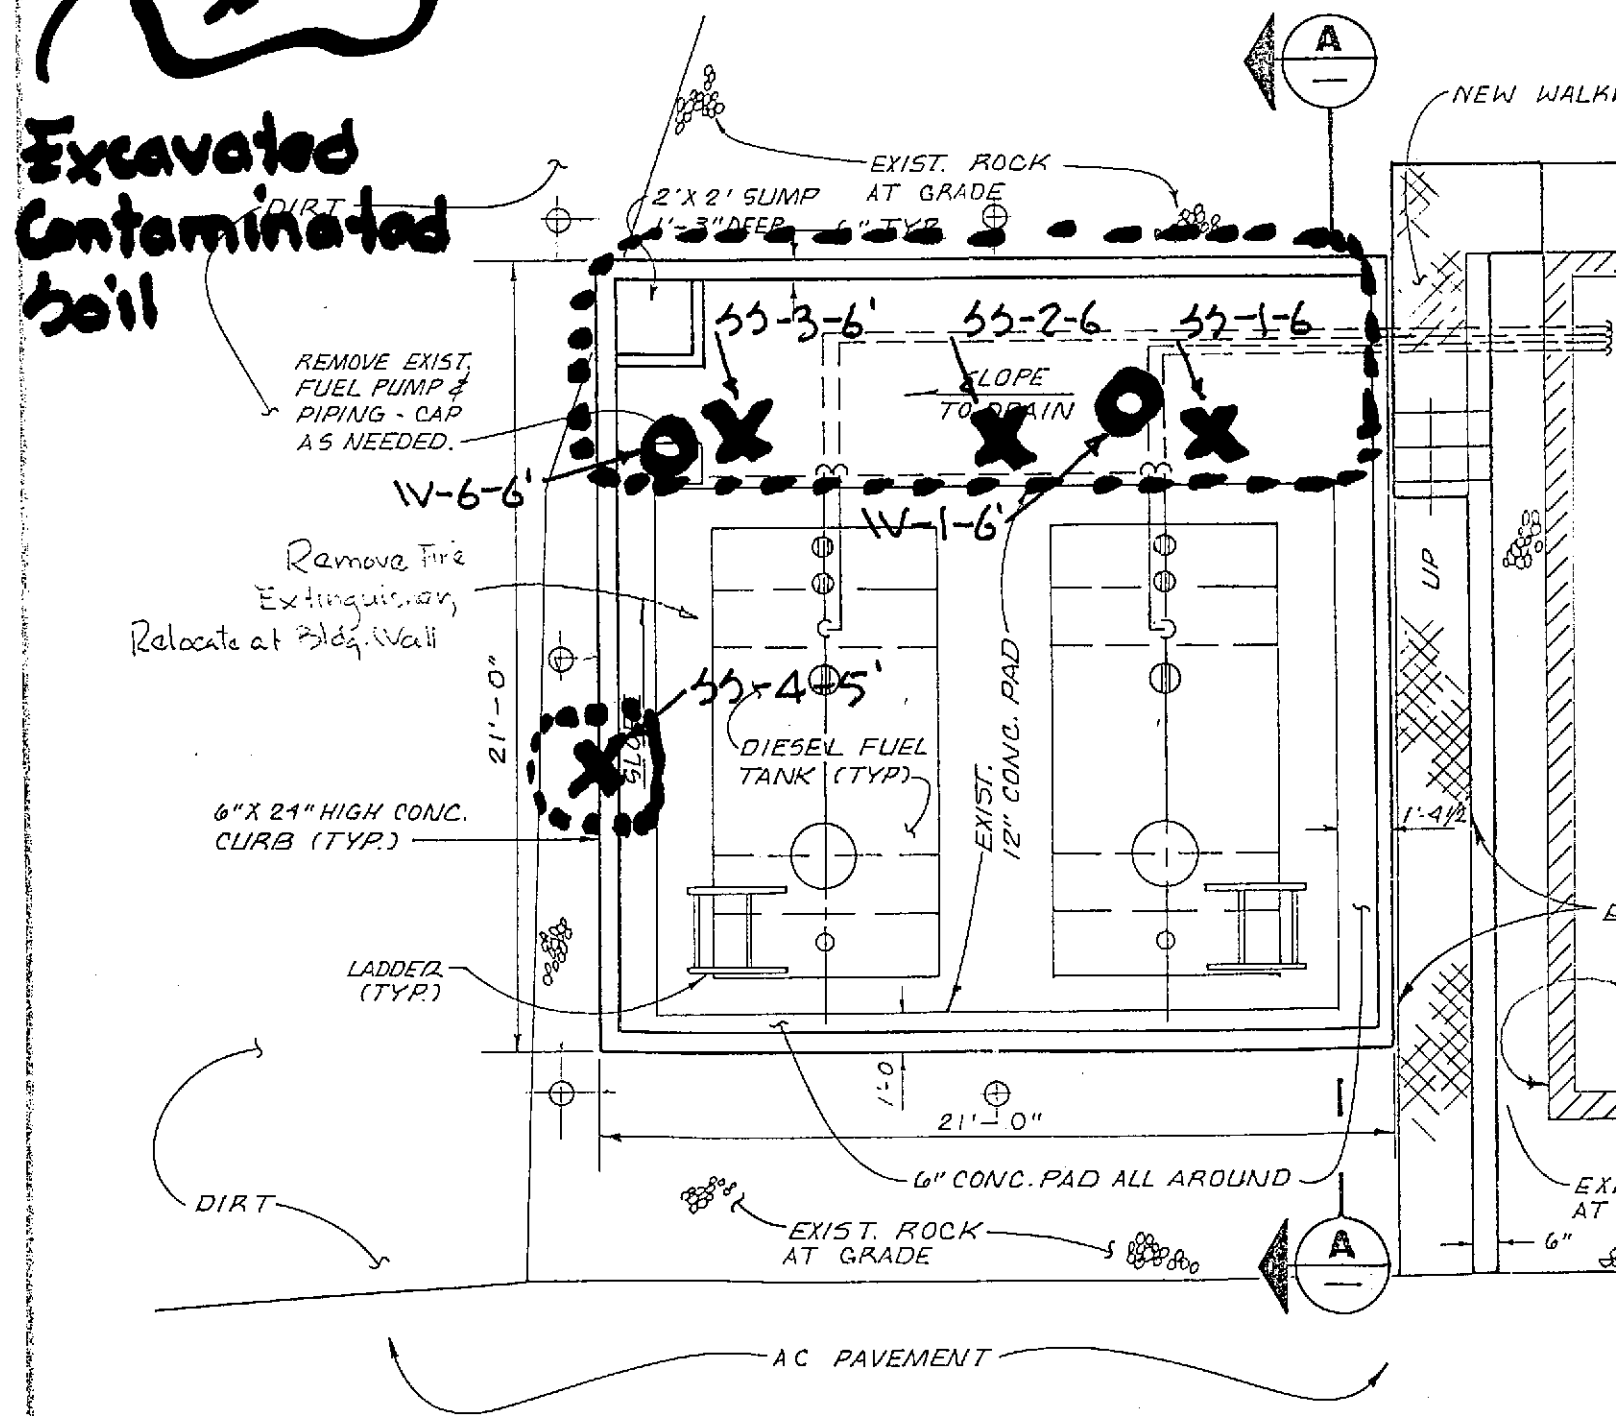 A
NEW WALK
Excavated
Contaminated
Soil
DIRT
EXIST. ROCK
AT GRADE
2'X 2' SUMP
1'-3" DEEP
6" TYP.
SS-3-6'
SS-2-6
SS-1-6
REMOVE EXIST.
FUEL PUMP &
PIPING - CAP
AS NEEDED.
SLOPE
TO DRAIN
W-6-6'
W-1-6'
Remove Fire
Extinguisher,
Relocate at Bldg. Wall
UP
21'-0"
SS-4-5'
DIESEL FUEL
TANK (TYP)
EXIST.
12" CONC. PAD
6"X 24" HIGH CONC.
CURB (TYP.)
1'-4 1/2
LADDER
(TYP.)
1'-0
21'-0"
6" CONC. PAD ALL AROUND
DIRT
EXIST. ROCK
AT GRADE
A
AT
6"
AC PAVEMENT